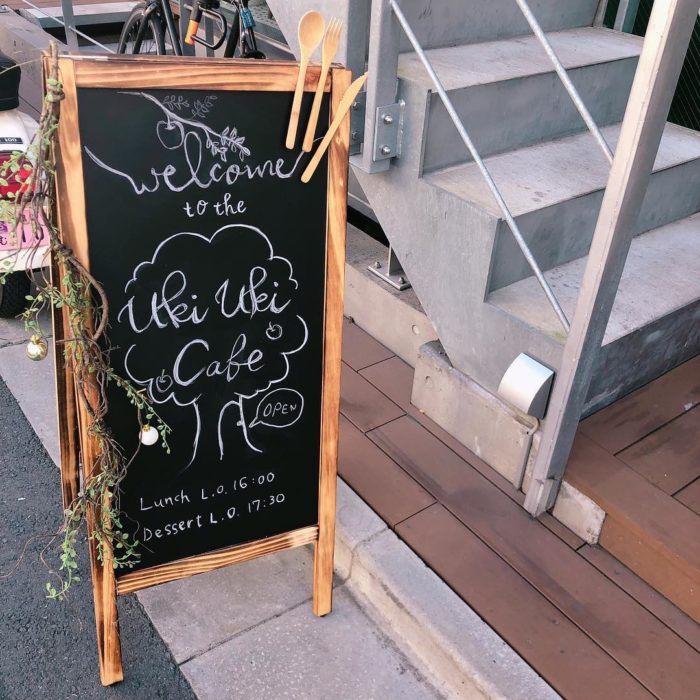 welcome
to the
Uki Uki
Cafe
OPEN
Lunch L.O. 16:00
Dessert L.O. 17:30